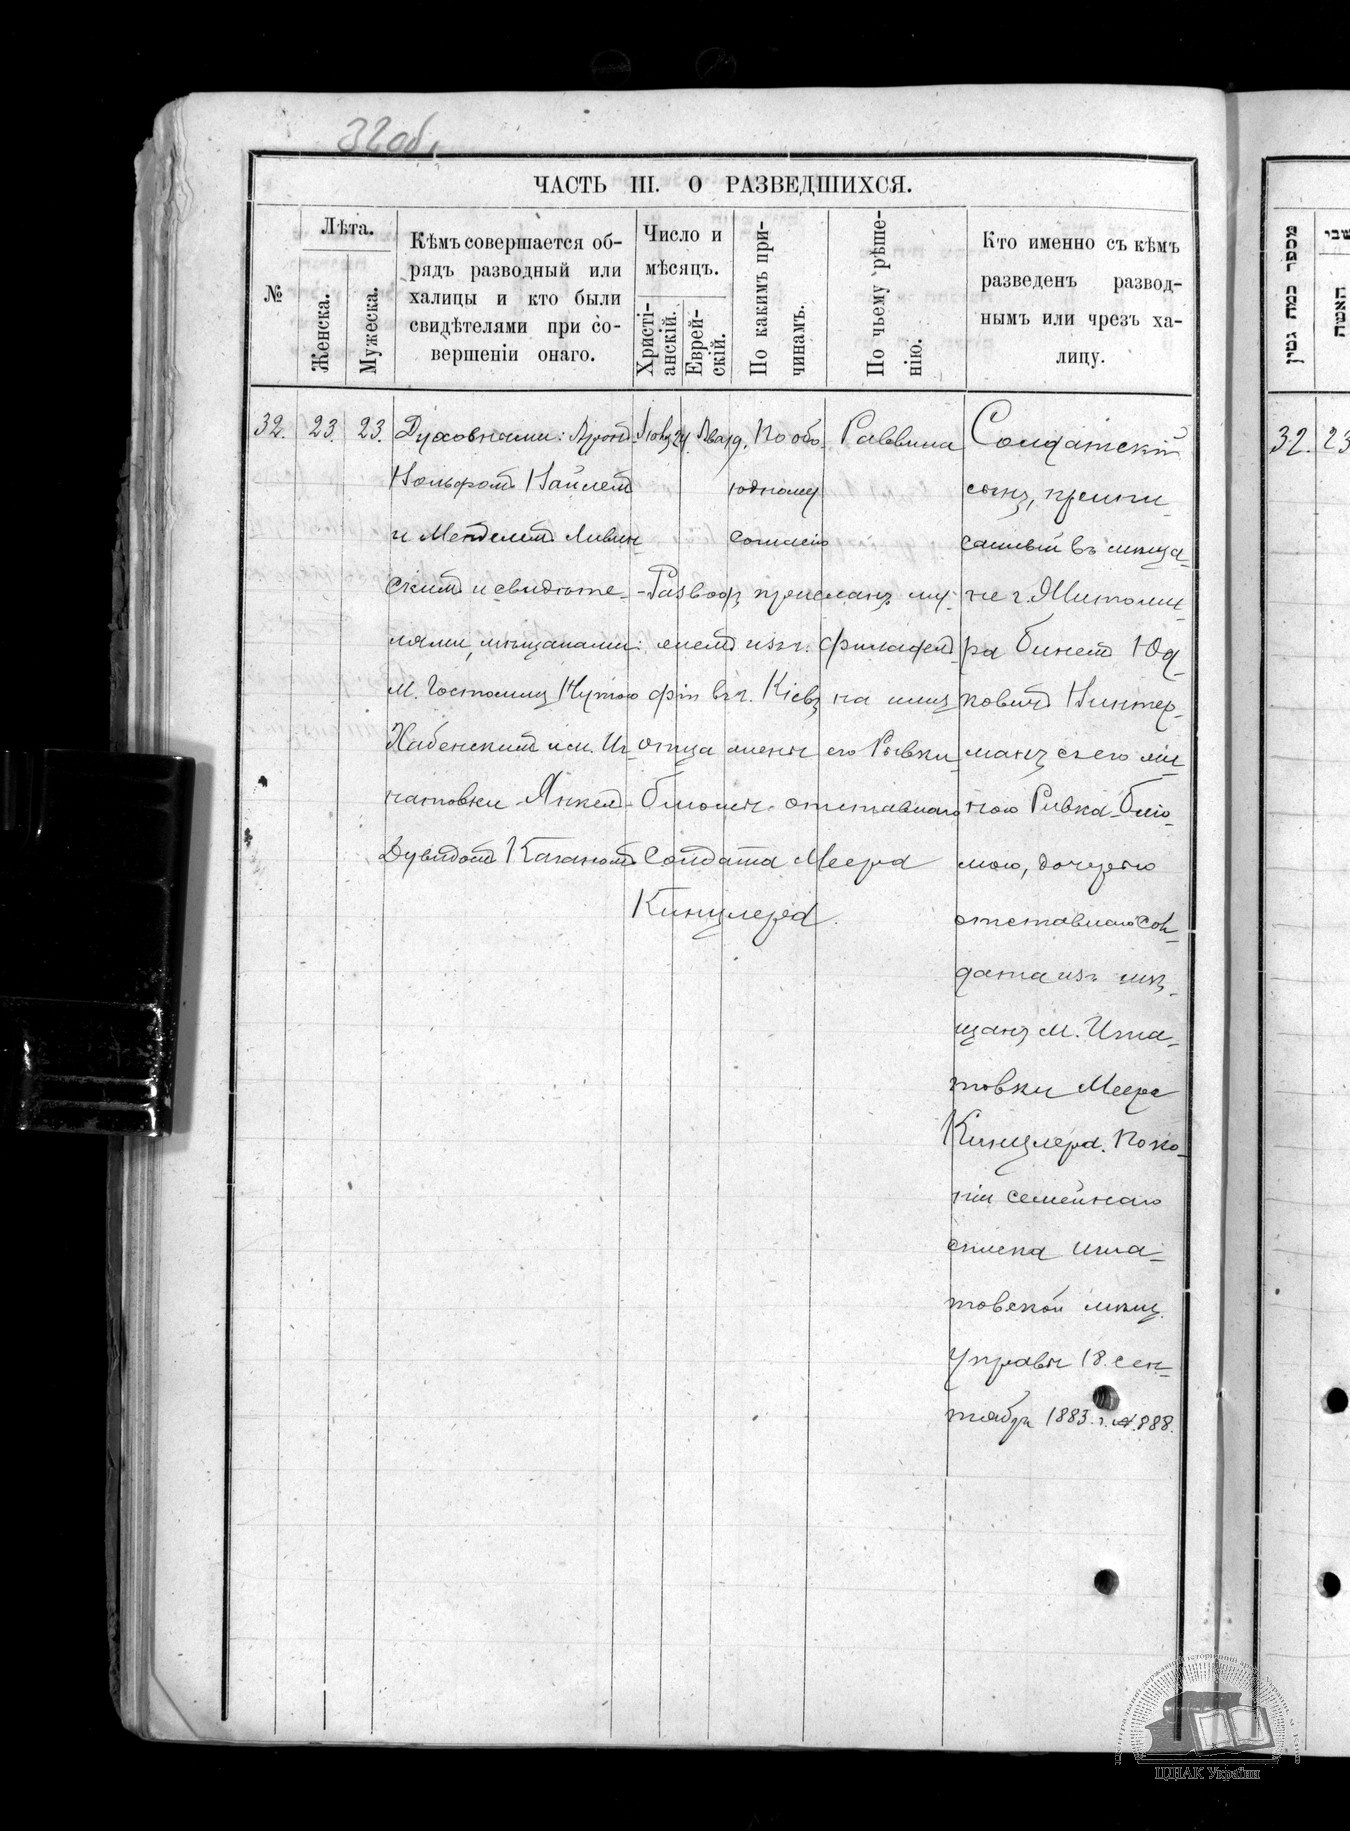 32 об.
ЧАСТЬ III. О РАЗВЕДШИХСЯ.
№
Лѣта.
Женска.
Мужеска.
Кѣмъ совершается об-
рядъ разводный или
халицы и кто были
свидѣтелями при со-
вершеніи онаго.
Число и
мѣсяцъ.
Христі-
анскій.
Еврей-
скій.
По какимъ при-
чинамъ.
По чьему рѣше-
нію.
Кто именно съ кѣмъ
разведенъ развод-
нымъ или чрезъ ха-
лицу.
32.
23.
23.
Духовными: Арон
Вольфомъ
и Менделемъ Ливин-
скимъ и свидѣте-
лями, мѣщанами:
М. Гостомля Нутою
Хабенскимъ и м. Иг-
натовки Янкел-
Дувидомъ Каганомъ
24.
19.
По обо-
юдному
согласію
Раввина
- Разводъ присланъ му-
жемъ изъ г. Филадел-
фіи въ г. Кіевъ на имя
отца жены его Рывки-
Блюмы отставнаго
Солдата Меера
Кинцлера.
Солдатскій
сынъ, припи-
санный въ мѣща-
не г. Житоми-
ра Бинем Юд-
кович
манъ съ его же-
ною Ривка-Блю-
мою, дочерью
отставнаго Сол-
дата изъ мѣ-
щанъ м. Игна-
товки Меера
Кинцлера. По ко-
піи семейнаго
списка Игна-
товской мѣщ.
Управы 18 Сен-
тября 1883 г. № 888.
מספר כמה גטין
האשה
32.
23
ЦДІАК України